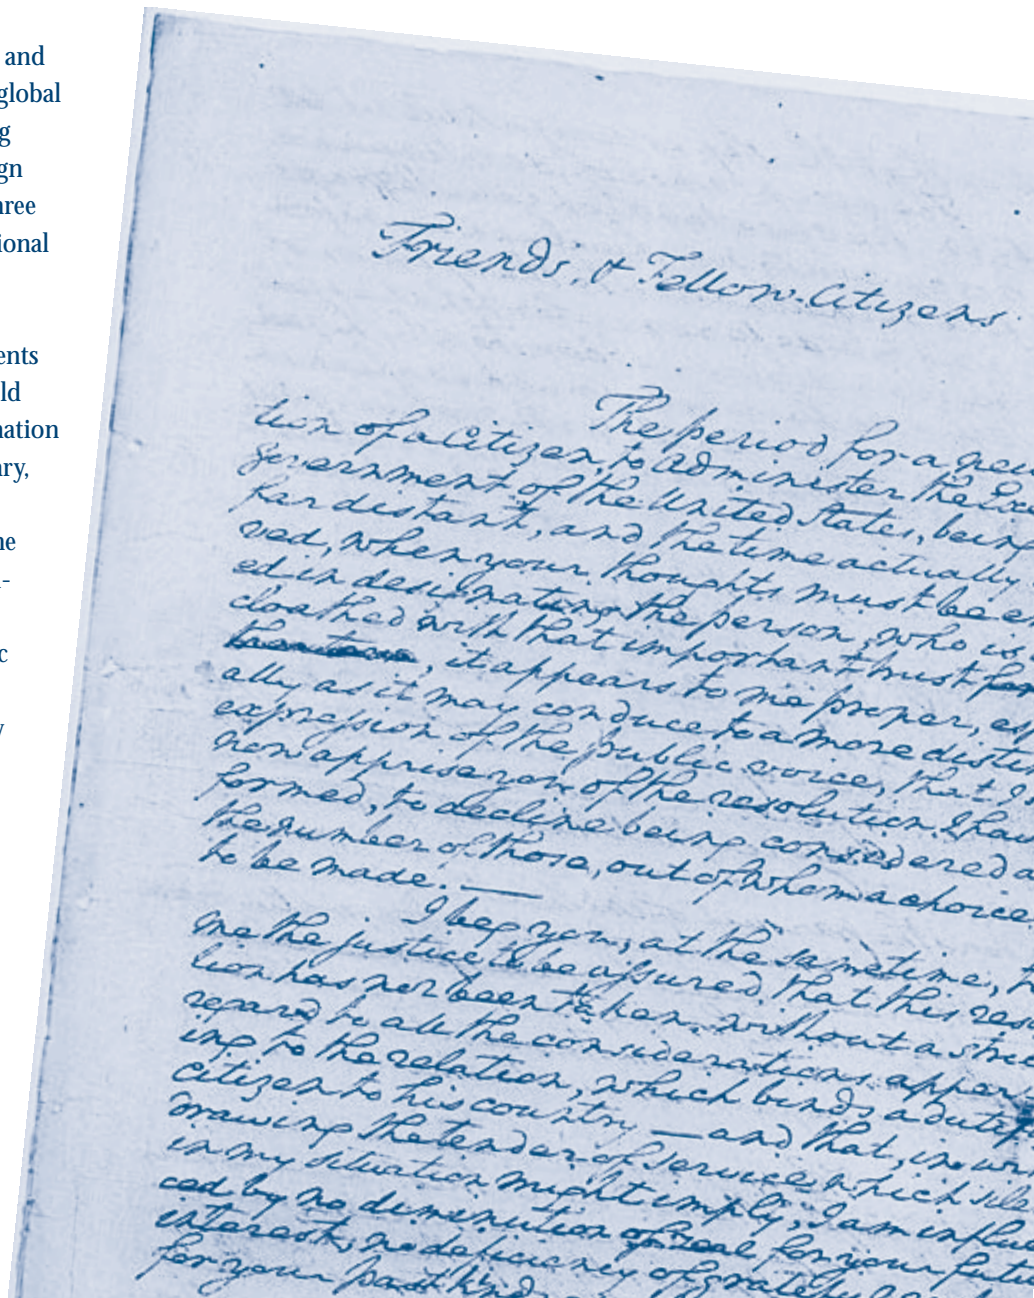 and
global
g
gn
hree
ional
ents
ld
nation
ary,
ne
-
c
y
Friends, & Fellow-Citizens
The period for a new
tion of a Citizen, to administer the Exe
government of the United States, being
far distant, and the time actually
ved, when your thoughts must be e
ed in designating the person, who is
cloathed with that important trust
, it appears to me proper, esp
ally as it may conduce to a more distin
expression of the public voice, that I
now apprise you of the resolution I hav
formed, to decline being considered a
the number of those, out of whom a choice
to be made. —
I beg you, at the same time, t
me the justice to be assured, that this res
tion has not been taken, without a stri
regard to all the considerations appert
ing to the relation, which binds a dutif
citizen to his country — and that, in wi
drawing the tender of service which sile
in my situation might imply, I am influ
ced by no diminution of zeal for your futu
interest, no deficiency of grateful
for your past kind